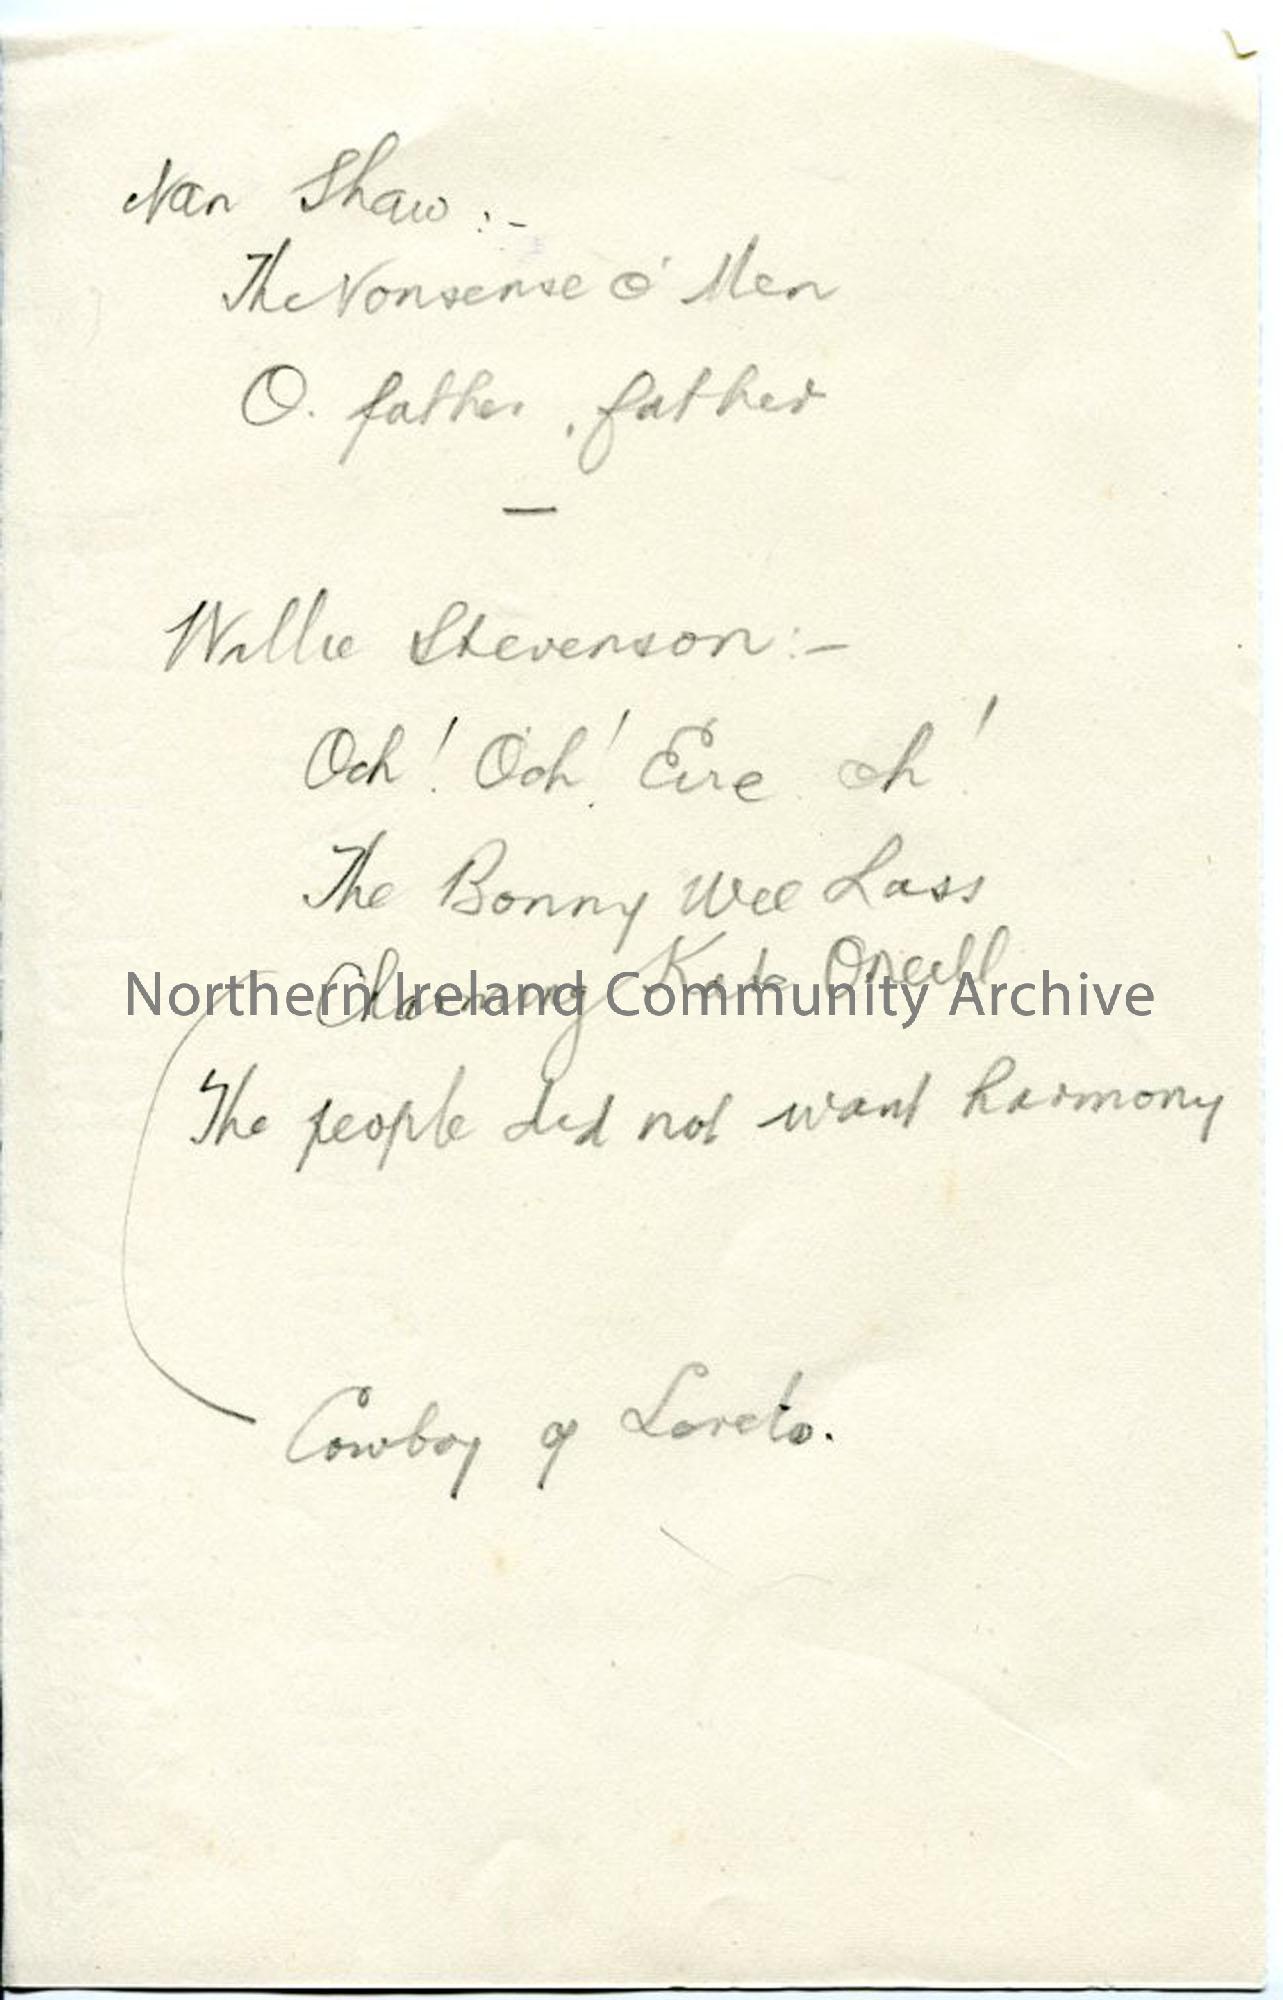 Nan Shaw :-
The Nonsense o' Men
O. father, father
—
Willie Stevenson :-
Och! Och! Éire oh!
The Bonny Wee Lass
Charming Kate O'Neill
Northern Ireland Community Archive
The people did not want harmony
Cowboy of Loreto.